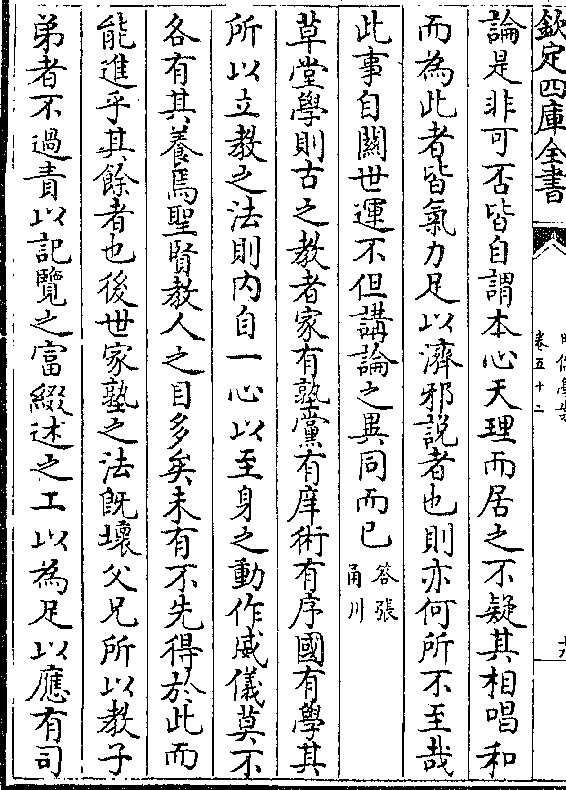 欽定四庫全書
卷五十二
論是非可否皆自謂本心天理而居之不疑其相唱和
而為此者皆氣力足以濟邪說者也則亦何所不至哉
此事自關世運不但講論之異同而已答張甬川
草堂學則古之教者家有塾黨有庠術有序國有學其
所以立教之法則內自一心以至身之動作威儀莫不
各有其養焉聖賢教人之目多矣未有不先得於此而
能進乎其餘者也後世家塾之法既壞父兄所以教子
弟者不過責以記覽之富綴述之工以為足以應有司